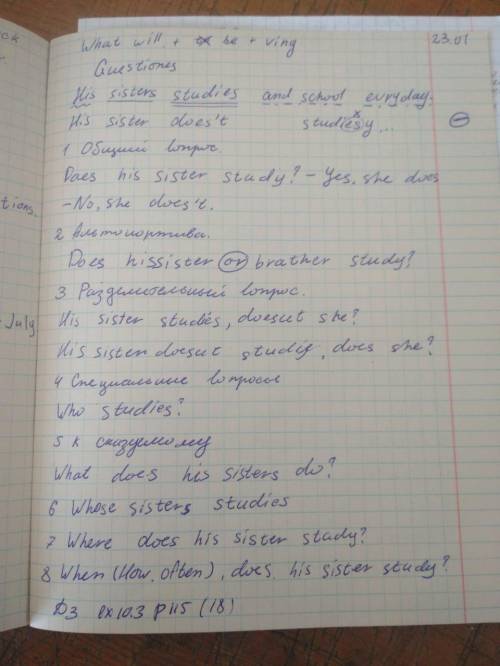 ck
What will + be + ving 23.01
Questiones
His sisters studies and school euryday.
His sister does't studiesy... -
1 Общий вопрос.
Does his sister study? - Yes, she does
- No, she does't.
2 Альтонортива.
tions.
Does hissister or brather study?
3 Разделительный вопрос.
July
His sister studies, doesut she?
His sister doesut studie, does she?
4 Специальные вопросы
Who studies?
5 к сказуемому
What does his sisters do?
6 Whose sisters studies
7 Where does his sister study?
8 When (How, often), does his sister study?
Дз ex10.3 p115 (18)